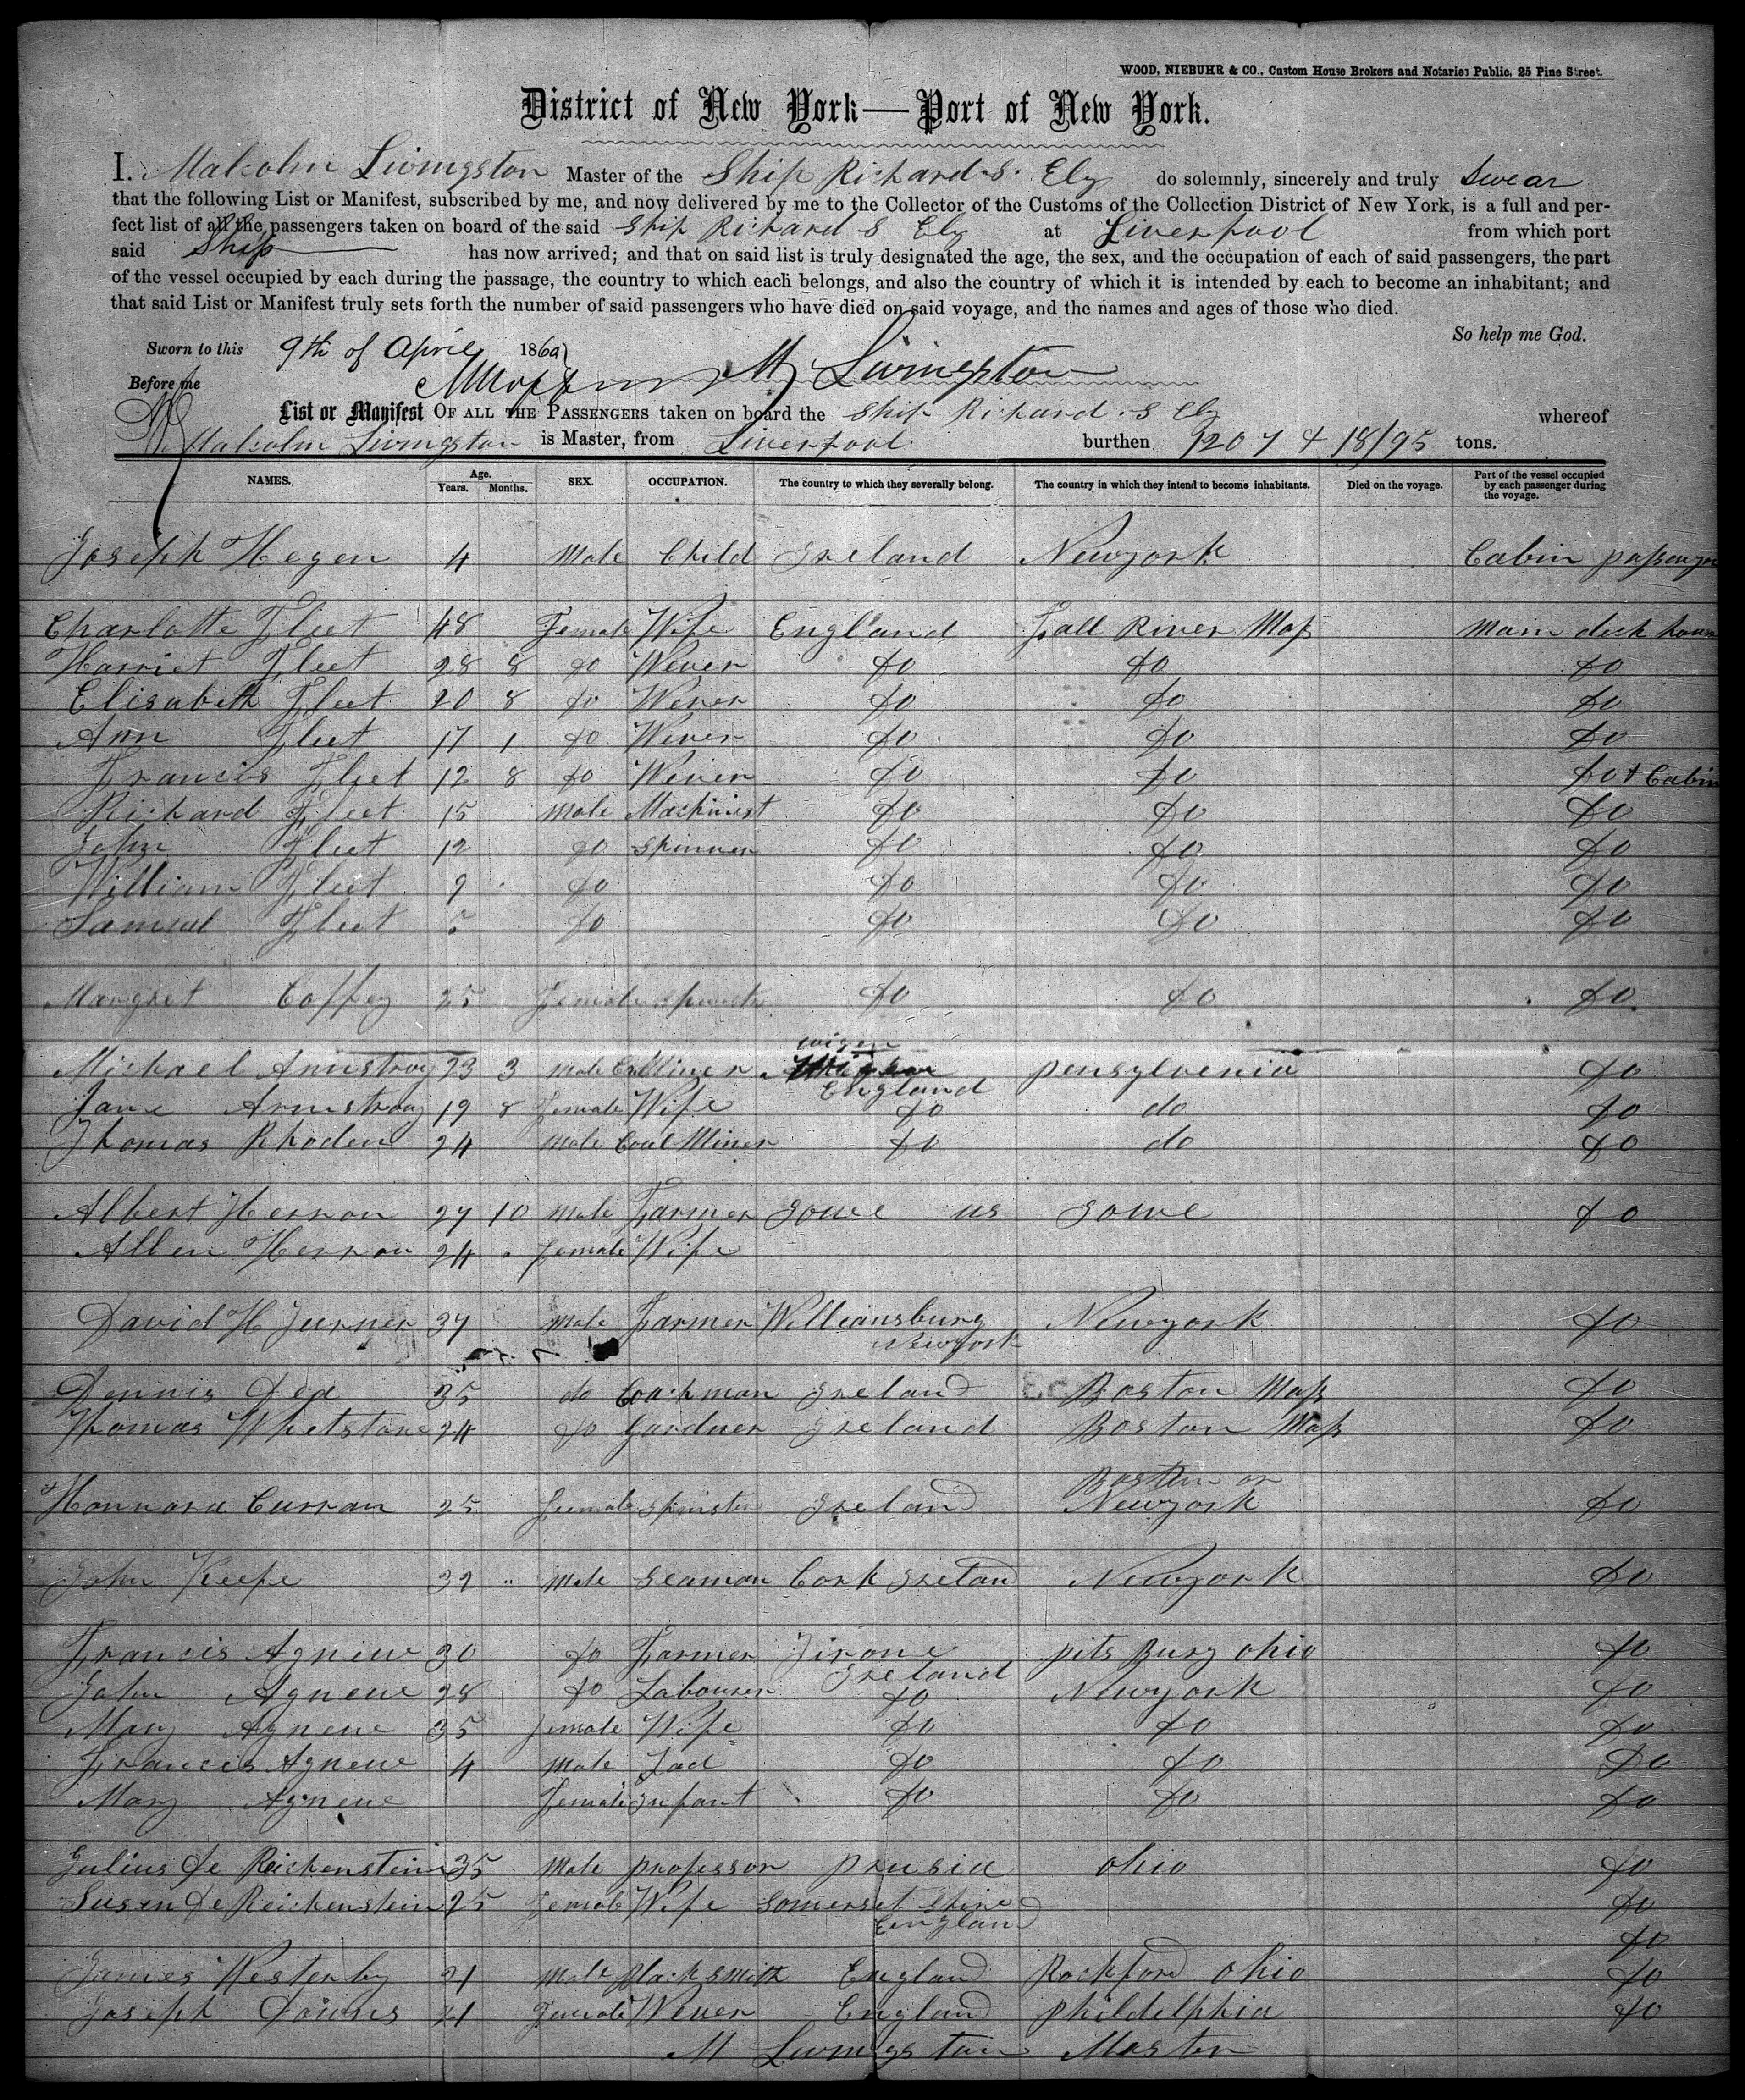 WOOD, NIEBUHR & CO., Custom House Brokers and Notaries Public, 25 Pine Street.
District of New York—Port of New York.
I. Malcolm Livingston Master of the Ship Richard S. Ely do solemnly, sincerely and truly swear
that the following List or Manifest, subscribed by me, and now delivered by me to the Collector of the Customs of the Collection District of New York, is a full and per-
fect list of all the passengers taken on board of the said Ship Richard S Ely at Liverpool from which port
said Ship has now arrived; and that on said list is truly designated the age, the sex, and the occupation of each of said passengers, the part
of the vessel occupied by each during the passage, the country to which each belongs, and also the country of which it is intended by each to become an inhabitant; and
that said List or Manifest truly sets forth the number of said passengers who have died on said voyage, and the names and ages of those who died.
So help me God.
Sworn to this 9th of April 1860
Before me M Livingston
List or Manifest OF ALL THE PASSENGERS taken on board the Ship Richard S Ely whereof
Malcolm Livingston is Master, from Liverpool burthen 1207 & 18/95 tons.
NAMES. Age. Years. Months. SEX. OCCUPATION. The country to which they severally belong. The country in which they intend to become inhabitants. Died on the voyage. Part of the vessel occupied by each passenger during the voyage.
Joseph Hegen 4 Male Child Ireland Newyork Cabin passenger
Charlotte Fleet 48 Female Wife England Fall River Mass Main deck house
Harriet Fleet 28 8 do Wever do do do
Elisabeth Fleet 20 8 do Wever do do do
Ann Fleet 17 1 do Wever do do do
Francis Fleet 12 8 do Wever do do do + Cabin
Richard Fleet 15 Male Machinist do do do
John Fleet 12 do Spinner do do do
William Fleet 9 do do do do
Samuel Fleet 5 do do do do
Margret Coffey 25 Female Spinster do do do
Michael Armstrong 23 3 Male Coal Miner wigen England pensylvenia do
Jane Armstrong 19 8 Female Wife do do do
Thomas Rhoden 24 Male Coal Miner do do do
Albert Herron 27 10 Male Farmer Iowe us Iowe do
Allen Herron 24 Female Wife
David H Turner 37 Male Farmer Williansburg Newyork Newyork do
Dennis Dea 35 do Coachman Ireland Boston Mass do
Thomas Whetstone 24 do Gardner Ireland Boston Mass do
Honnora Curran 25 Female Spinster Ireland Boston or Newyork do
John Keefe 39 " Male Seaman Cork Ireland Newyork do
Francis Agnew 30 do Farmer Tirone Ireland pits Burg ohio do
John Agnew 28 do Labourer do Newyork do
Mary Agnew 35 Female Wife do do do
Francis Agnew 4 Male Lad do do do
Mary Agnew Female Infant do do do
Julius de Reichenstein 35 Male professor prusia ohio do
Susan de Reichenstein 25 Female Wife Somerset Shire England do
do
James Westenby 21 Male Blacksmith England Rockford ohio do
Joseph Downs 21 Female Wever England phildelphia do
M Livingston Master